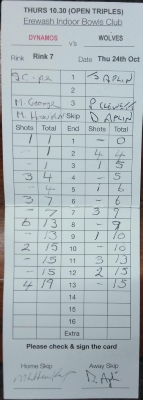 THURS 10.30 (OPEN TRIPLES)
Erewash Indoor Bowls Club
DYNAMOS v's WOLVES
Rink Rink 7 Date Thu 24th Oct
1 S APLIN
2
M. George 3
Skip D APLIN
Shots Total End Shots Total
1 1 1 - 0
- 1 2 4 4
- 1 3 1 5
3 4 4 - 5
- 4 5 1 6
3 7 6 - 6
- 7 7 3 9
6 13 8 - 9
- 13 9 1 10
2 15 10 - 10
- 15 11 3 13
- 15 12 2 15
4 19 13 - 15
14
15
16
Extra
Please check & sign the card
Home Skip Away Skip